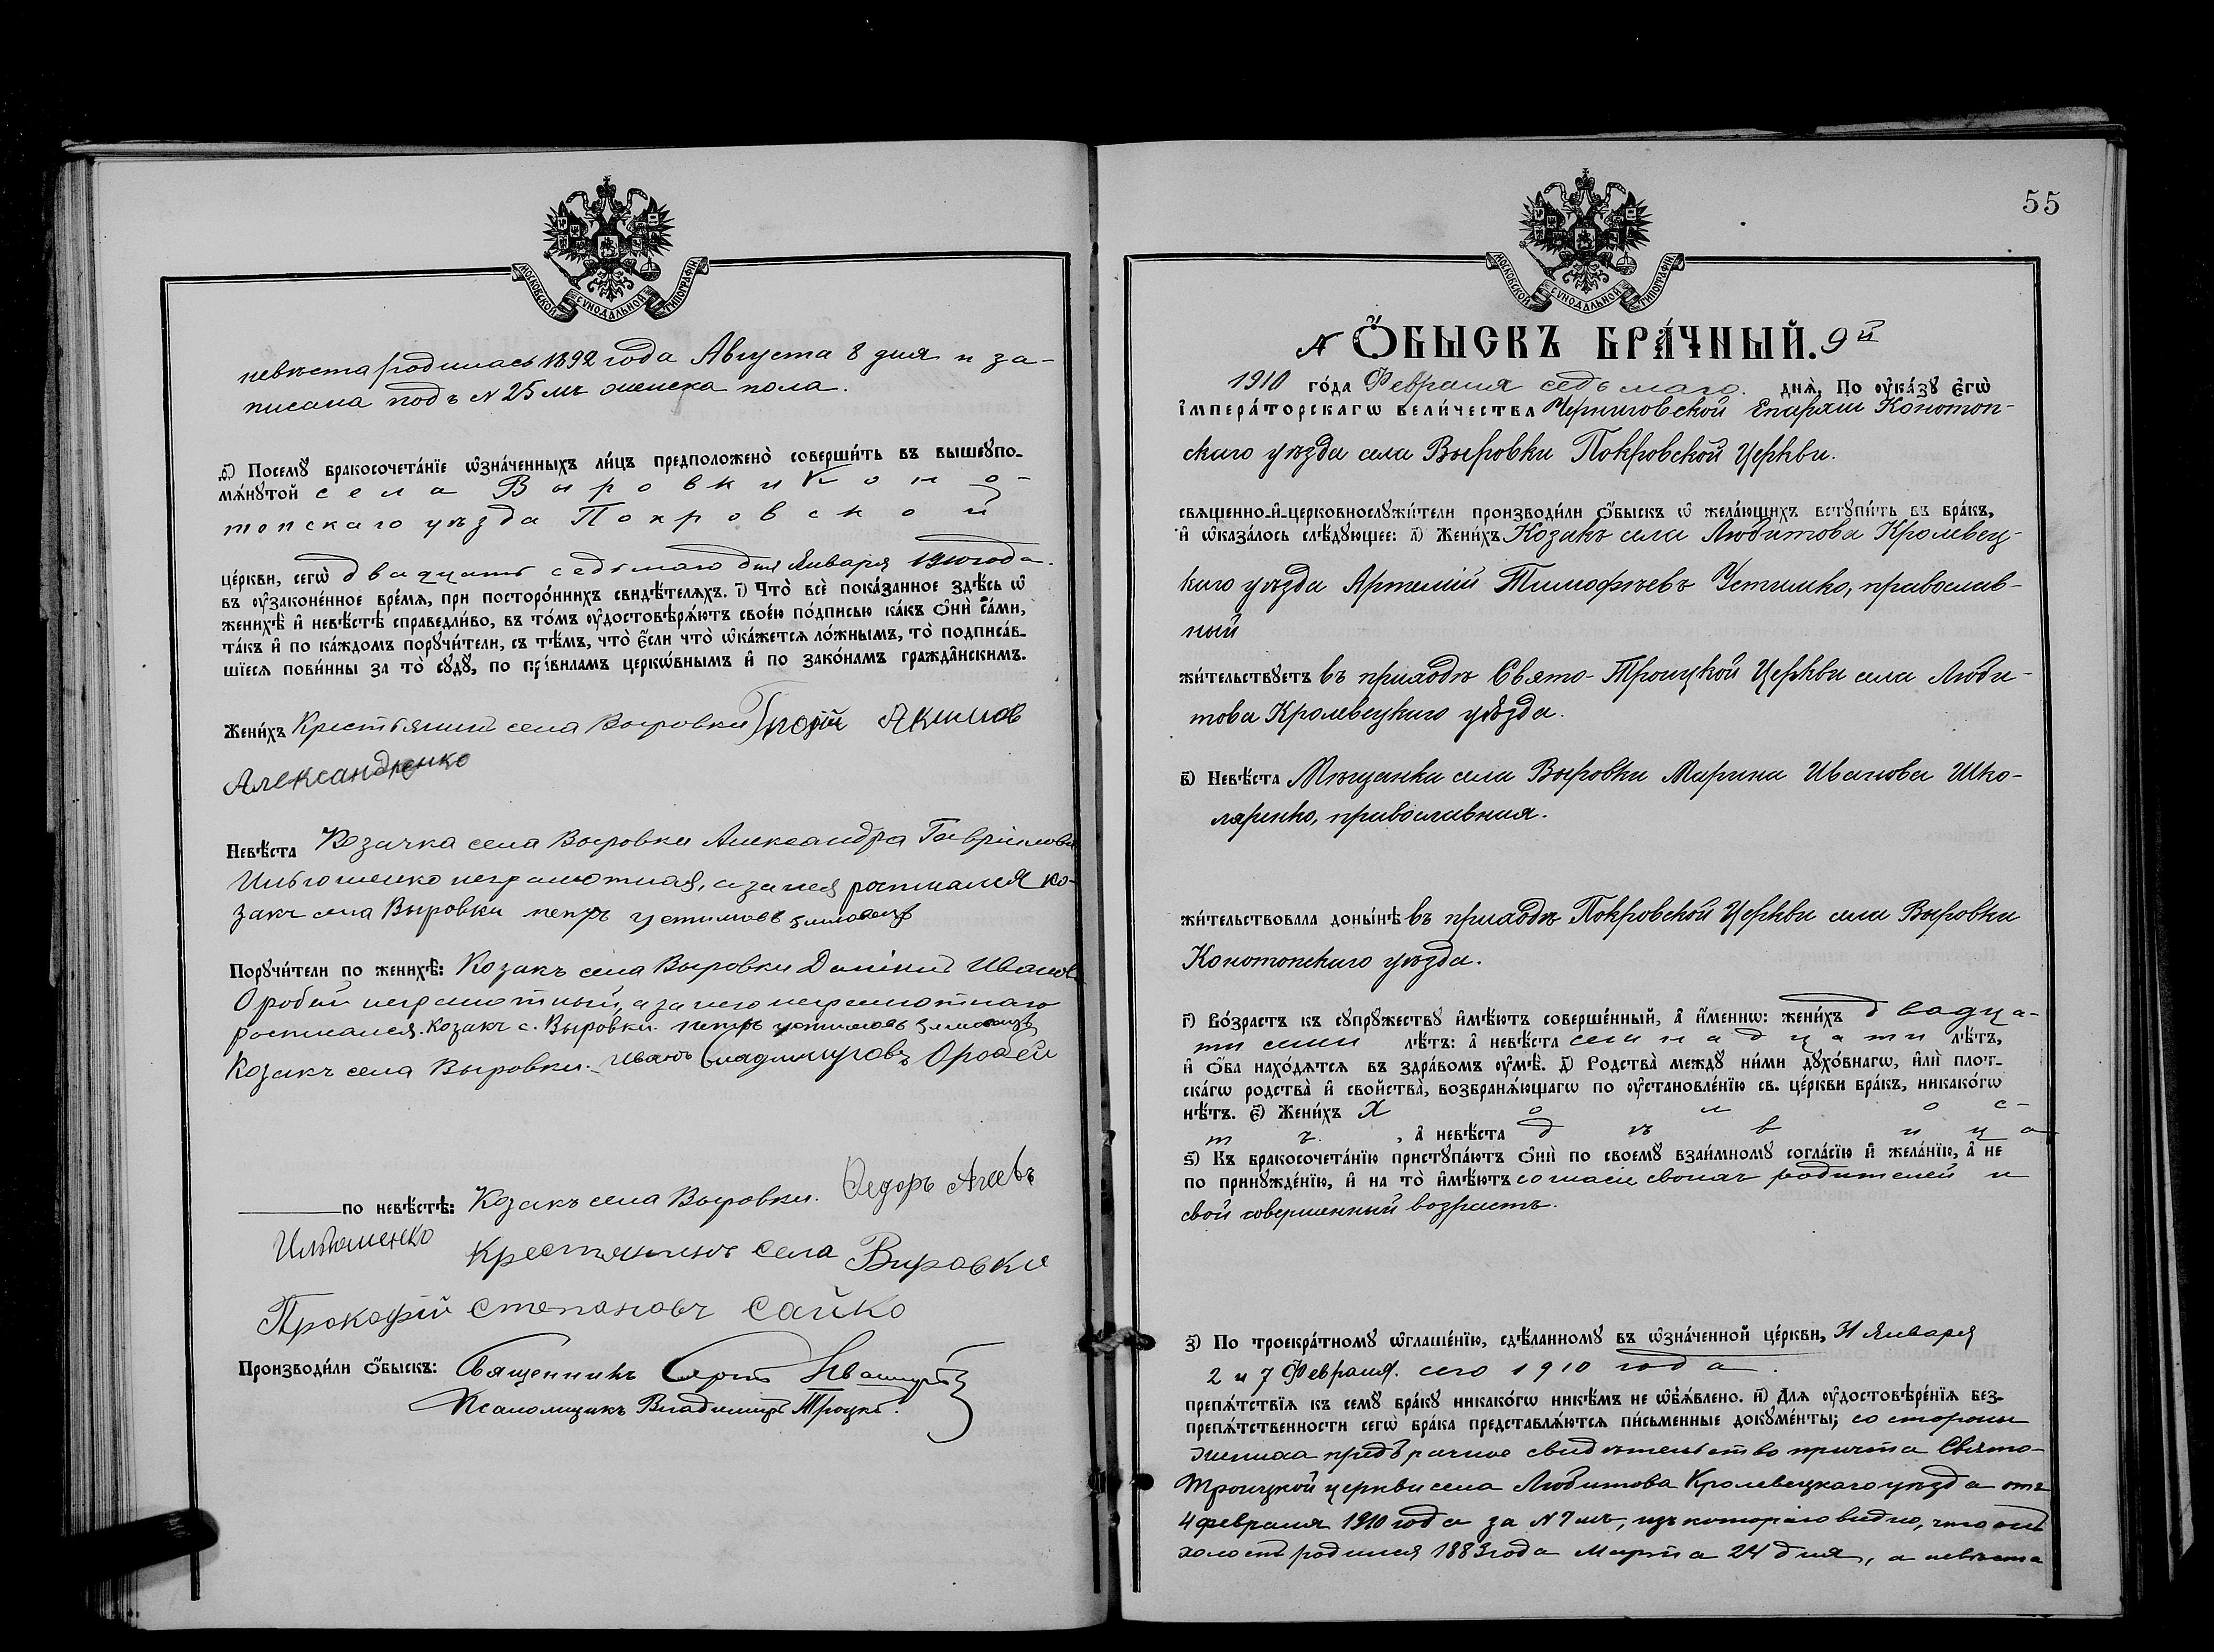 МОСКОВСКОЙ СѴНОДАЛЬНОЙ ТИПОГРАФІИ
невѣста родилась 1892 года Августа 8 дня и за-
писана подъ № 25 мъ женска пола.
ѳ҃) Посемꙋ бракосочета́нїе ѡ҆зна́ченныхъ ли́цъ предположено̀ соверши́ть въ вышеꙋпо-
мѧ́нꙋтой села Выровки Коно-
топскаго уѣзда Покровской
це́ркви, сегѡ̀ двадцать седьмаго дня Января 1910 года.
въ ᲂу҆законе́нное вре́мѧ, при посторо́ннихъ свидѣ́телѧхъ. і҃) Что̀ всѐ пока́занное здѣ́сь ѡ҆
женихѣ̀ и҆ невѣ́стѣ справедли́во, въ то́мъ ᲂу҆достовѣрѧ́ютъ своє́ю по́дписью ка́къ ѻ҆нѝ са́ми,
та́къ и҆ по ка́ждомъ порꙋчи́тели, съ тѣ́мъ, что̀ є҆́сли что̀ ѡ҆ка́жетсѧ ло́жнымъ, то̀ подписа́в-
шїесѧ пови́нны за то̀ сꙋдꙋ̀, по пра́виламъ церкѡ́внымъ и҆ по зако́намъ гражда̂нскимъ.
Жени́хъ Крестьянинъ села Выровки Акимов
Александренко
Невѣ́ста Козачка села Выровки Александра Гаврилова
Ильюшенко неграмотная, а за нея росписался ко-
закъ села Выровки петръ устимовъ
Порꙋчи́тели по женихѣ̀: Козакъ села Выровки Иванов
Оробей неграмотный, а за него неграмотнаго
росписался. Козакъ с. Выровки. петръ устимовъ
Козакъ села Выровки. Иванъ Владимировъ Оробей
по невѣ́стѣ: Козакъ села Выровки. Федоръ Агеевъ
Ильюшенко Крестьянинъ села Вировки
Прокофій Степановъ Сайко
Производи́ли ѻ҆́быскъ: Священникъ
Псаломщикъ Владиміръ Троцкій.
55
МОСКОВСКОЙ СѴНОДАЛЬНОЙ ТИПОГРАФІИ
№ Ѻ҆́БЫСКЪ БРА́ЧНЫЙ. 9й
1910 го́да Февраля седьмаго днѧ̀, По ᲂу҆ка́зꙋ є҆гѡ̀
і҆мпера́торскагѡ вели́чества Черниговской Епархіи Конотоп-
скаго уѣзда села Выровки Покровской Церкви.
свѧще́нно-и҆-церковнослꙋжи́тели производи́ли ѻ҆́быскъ ѡ҆ жела́ющихъ встꙋпи́ть въ бра́къ,
и҆ ѡ҆каза́лось слѣ́дꙋющее: а҃) Жени́хъ Козакъ села Любитова Кролевец-
каго уѣзда Артемій Тимофѣевъ Устименко, православ-
ный
жи́тельствꙋетъ въ приходѣ Свято-Троицкой Церкви села Люби-
това Кролевецкаго уѣзда.
в҃) Невѣ́ста Мѣщанка села Выровки Марина Иванова Шко-
ляренко, православная.
жи́тельствовала доны́нѣ въ приходѣ Покровской Церкви села Выровки
Конотопскаго уѣзда.
г҃) Во́зрастъ къ сꙋпрꙋ́жествꙋ и҆мѣ́ютъ соверше́нный, а҆ и҆́меннѡ: жени́хъ двадца-
ти семи лѣ́тъ: а҆ невѣ́ста семнадцати лѣ́тъ,
и҆ ѻ҆́ба нахо́дѧтсѧ въ здра́вомъ ᲂу҆мѣ̀. д҃) Родства̀ между ни́ми дꙋхо́внагѡ, и҆лѝ плот-
ска́гѡ родства̀ и҆ свойства̀, возбранѧ́ющагѡ по ᲂу҆становле́нїю св. це́ркви бра́къ, никако́гѡ
нѣ́тъ. є҃) Жени́хъ холос-
тъ, а҆ невѣ́ста дѣвица
ѕ҃) Къ бракосочета́нїю пристꙋпа́ютъ ѻ҆нѝ по своемꙋ̀ взаи́мномꙋ согла́сїю и҆ жела́нїю, а҆ не
по принꙋжде́нїю, и҆ на то̀ и҆мѣ́ютъ согласіе своихъ родителей и
свой совершенный возрастъ.
з҃) По троекра́тномꙋ ѡ҆глаше́нїю, сдѣ́ланномꙋ въ ѡ҆зна́ченной це́ркви, 31 Января
2 и 7 Февраля. сего 1910 года.
препѧ́тствїѧ къ семꙋ̀ бра́кꙋ никако́гѡ никѣ́мъ не ѡ҆б̾ѧ́влено. и҃) Длѧ ᲂу҆достовѣре́нїѧ без-
препѧ́тственности сегѡ̀ бра́ка представлѧ́ютсѧ пи́сьменные докꙋме́нты; со стороны
жениха предбрачное свидѣтельство причта Свято-
Троицкой церкви села Любитова Кролевецкаго уѣзда отъ
4 февраля 1910 года за № 7 мъ, изъ котораго видно, что онъ
холостъ родился 1883 года Марта 24 дня, а невѣста